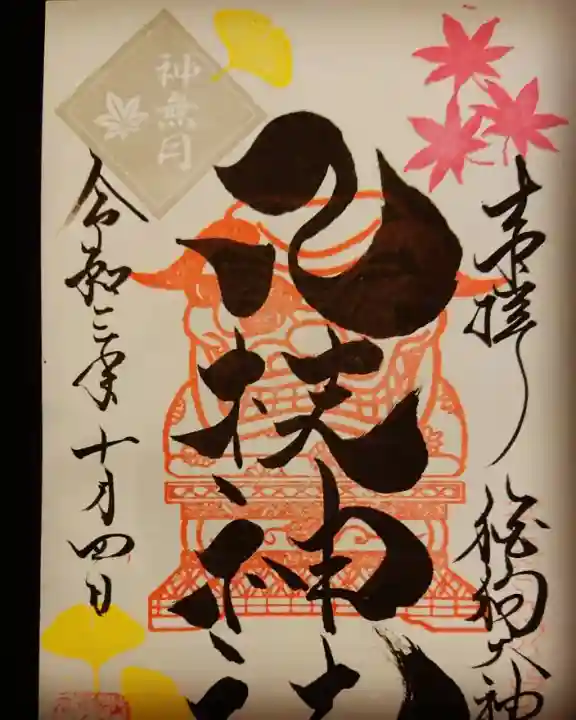 奉拝 狛狗大神
八枝神社
神無月
令和三年十月四日